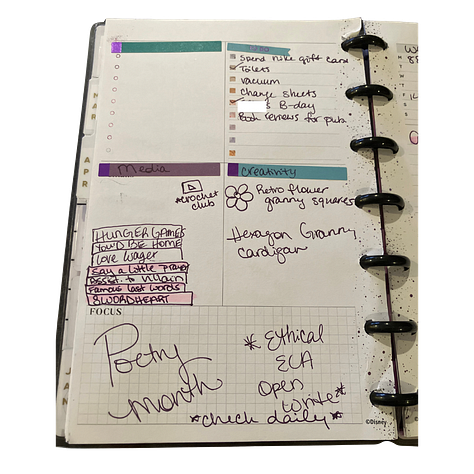 TODO
Spend nike gift card
Toilets
vacuum
Change sheets
s B-day
Book reviews for pub
Media
#crochet
club
HUNGER GAMES
YOU'D BE HOME
Love Wager
Say a Little Prayer
Assist. to Villain
Famous Last Words
SWORDHEART
Creativity
Retro flower
granny squares
Hexagon Granny
cardigan
FOCUS
Poetry
month
*Ethical
ECA
Open
Write*
*check daily*
©Disney
MAR
APR
JAN